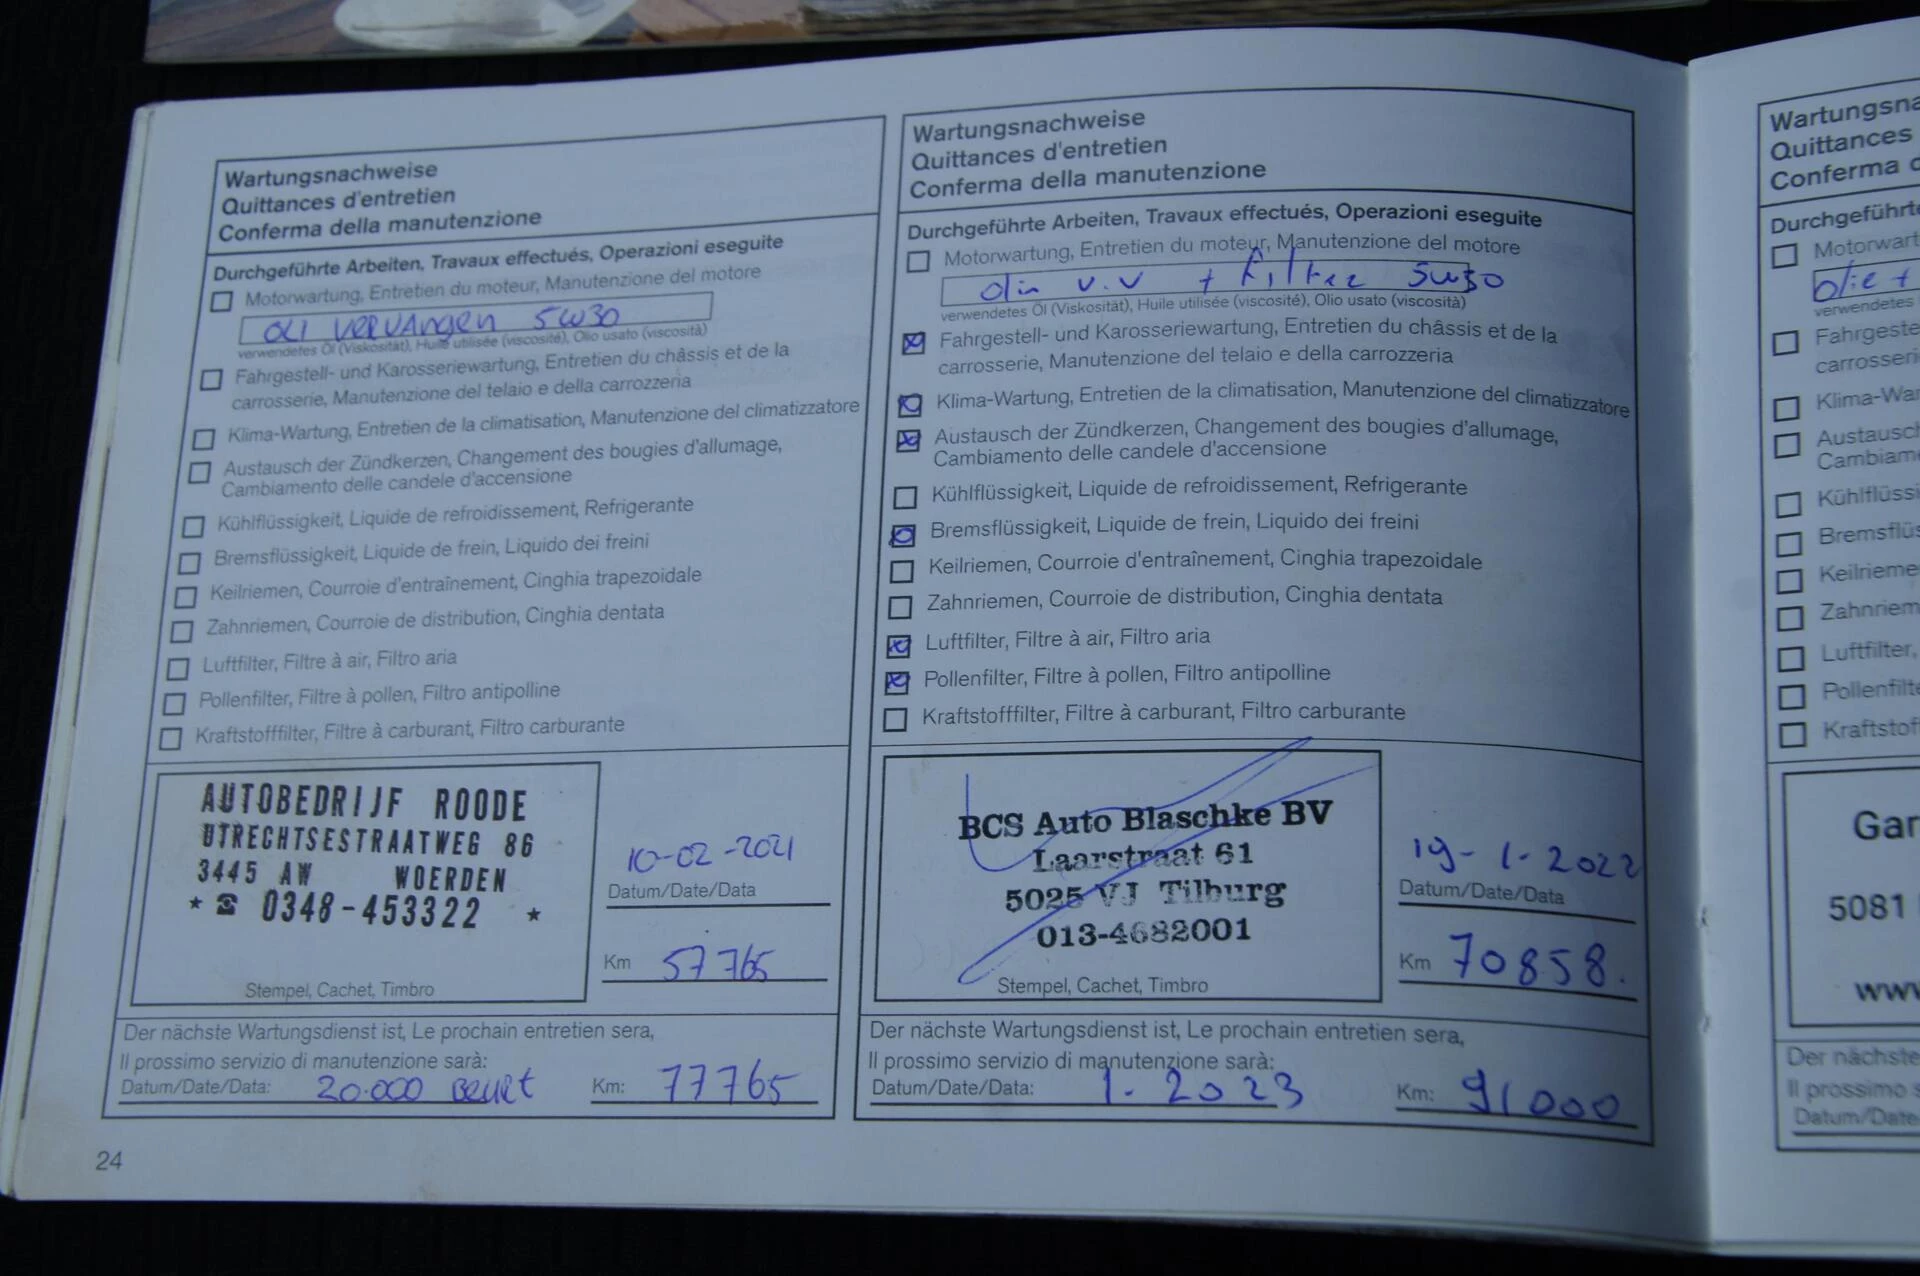 Wartungsnachweise
Quittances d'entretien
Conferma della manutenzione
Durchgeführte Arbeiten, Travaux effectués, Operazioni eseguite
Motorwartung, Entretien du moteur, Manutenzione del motore
OLI VERVANGEN 5W30
verwendetes Öl (Viskosität), Huile utilisée (viscosité), Olio usato (viscosità)
Fahrgestell- und Karosseriewartung, Entretien du châssis et de la
carrosserie, Manutenzione del telaio e della carrozzeria
Klima-Wartung, Entretien de la climatisation, Manutenzione del climatizzatore
Austausch der Zündkerzen, Changement des bougies d'allumage,
Cambiamento delle candele d'accensione
Kühlflüssigkeit, Liquide de refroidissement, Refrigerante
Bremsflüssigkeit, Liquide de frein, Liquido dei freini
Keilriemen, Courroie d'entraînement, Cinghia trapezoidale
Zahnriemen, Courroie de distribution, Cinghia dentata
Luftfilter, Filtre à air, Filtro aria
Pollenfilter, Filtre à pollen, Filtro antipolline
Kraftstofffilter, Filtre à carburant, Filtro carburante
AUTOBEDRIJF ROODE
UTRECHTSESTRAATWEG 86
3445 AW WOERDEN
★ ☎ 0348-453322 ★
Stempel, Cachet, Timbro
10-02-2021
Datum/Date/Data
Km 57765
Der nächste Wartungsdienst ist, Le prochain entretien sera,
Il prossimo servizio di manutenzione sarà:
Datum/Date/Data: 20.000 BEURT Km: 77765
24
Wartungsnachweise
Quittances d'entretien
Conferma della manutenzione
Durchgeführte Arbeiten, Travaux effectués, Operazioni eseguite
Motorwartung, Entretien du moteur, Manutenzione del motore
v.v + filter 5w30
verwendetes Öl (Viskosität), Huile utilisée (viscosité), Olio usato (viscosità)
Fahrgestell- und Karosseriewartung, Entretien du châssis et de la
carrosserie, Manutenzione del telaio e della carrozzeria
Klima-Wartung, Entretien de la climatisation, Manutenzione del climatizzatore
Austausch der Zündkerzen, Changement des bougies d'allumage,
Cambiamento delle candele d'accensione
Kühlflüssigkeit, Liquide de refroidissement, Refrigerante
Bremsflüssigkeit, Liquide de frein, Liquido dei freini
Keilriemen, Courroie d'entraînement, Cinghia trapezoidale
Zahnriemen, Courroie de distribution, Cinghia dentata
Luftfilter, Filtre à air, Filtro aria
Pollenfilter, Filtre à pollen, Filtro antipolline
Kraftstofffilter, Filtre à carburant, Filtro carburante
BCS Auto Blaschke BV
Laarstraat 61
5025 VJ Tilburg
013-4682001
Stempel, Cachet, Timbro
19-1-2022
Datum/Date/Data
Km 70858.
Der nächste Wartungsdienst ist, Le prochain entretien sera,
Il prossimo servizio di manutenzione sarà:
Datum/Date/Data: 1-2023 Km: 91000
Wartungsna
Quittances
Conferma d
Durchgeführte
Motorwart
olie +
verwendetes
Fahrgeste
carrosserie
Klima-War
Austausch
Cambiam
Kühlflüssi
Bremsflüs
Keilrieme
Zahnriem
Luftfilter,
Pollenfilte
Kraftstof
Gar
5081
www
Der nächste
Il prossimo s
Datum/Date